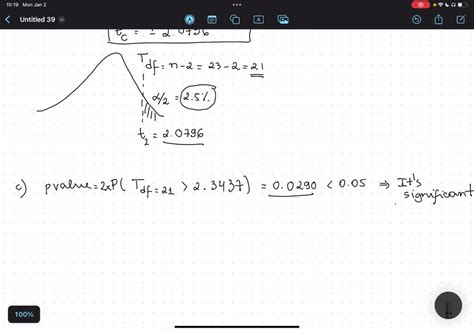 15:19 Mon Jan 2
Untitled 39
t_c = ± 2.0796
T_df = n-2 = 23-2 = 21
α/2 = 2.5%
t_2 = 2.0796
c) pvalue = 2xP( T_df=21 > 2.3437) = 0.0290 < 0.05 ⇒ It's
significant
100%